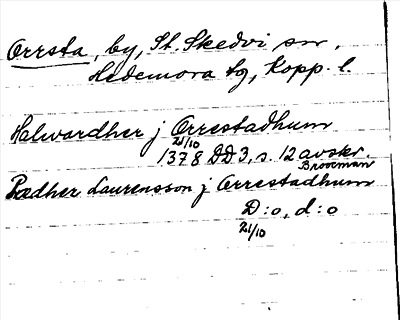 Orrsta, by, St. Skedvi sn,
Hedemora tg, Kopp. l.
Halwardher j Orrestadhum
21/10
1378 DD 3, s. 12 avskr.
Brocman
Pædher Laurensson j Orrestadhum
D:o, d:o
21/10